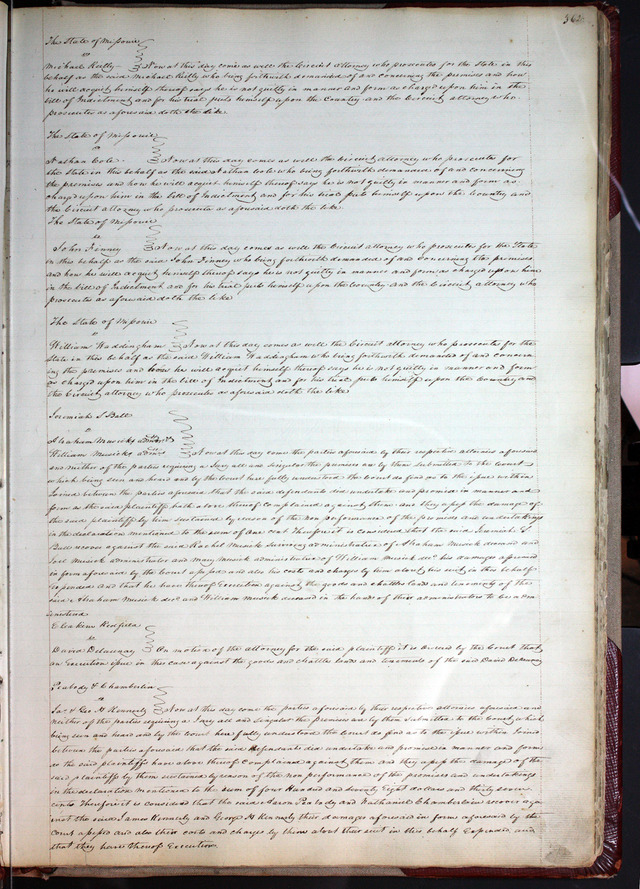 The State of Missouri
vs
Michael Kelly Now at this day comes as well the Circuit Attorney who prosecutes for the State in this
behalf as the said Michael Kelly who being forthwith demanded of and concerning the premises and how
he will acquit himself thereof says he is not guilty in manner and form as charged upon him in the
bill of Indictment and for his trial puts himself upon the Country and the Circuit attorney who
prosecutes as aforesaid doth the like
The State of Missouri
vs
Nathan Cole Now at this day comes as well the Circuit attorney who prosecutes for
the State in this behalf as the said Nathan Cole who being forthwith demanded of and concerning
the premises and how he will acquit himself thereof says he is not guilty in manner and form as
charged upon him in the bill of Indictment and for his trial puts himself upon the Country and
the Circuit attorney who prosecutes as aforesaid doth the like
The State of Missouri
vs
John Finney Now at this day comes as well the Circuit attorney who prosecutes for the State
in this behalf as the said John Finney who being forthwith demanded of and concerning the premises
and how he will acquit himself thereof says he is not guilty in manner and form as charged upon him
in the bill of Indictment and for his trial puts himself upon the Country and the Circuit attorney who
prosecutes as aforesaid doth the like
The State of Missouri
vs
William Waddingham Now at this day comes as well the Circuit attorney who prosecutes for the
State in this behalf as the said William Waddingham who being forthwith demanded of and concern
ing the premises and how he will acquit himself thereof says he is not guilty in manner and form
as charged upon him in the bill of Indictment and for his trial puts himself upon the Country and
the Circuit attorney who prosecutes as aforesaid doth the like
Jeremiah S Ball
vs
Abraham Musicks admrs &
William Musicks admrs Now at this day come the parties aforesaid by their respective attornies aforesaid
and neither of the parties requiring a Jury all and singular the premises are by them submitted to the Court
which being seen and heard and by the Court here fully understood the Court do find as to the issue within
Joined between the parties aforesaid that the said defendants did undertake and promise in manner and
form as the said plaintiff hath above thereof Complained against them and they assess the damage of
the said plaintiff by him sustained by reason of the non performance of the promises and undertakings
in the declaration mentioned to the sum of one Cent Therefore it is considered that the said Jeremiah S
Ball recover against the said Rachel Musick surviving administratrix of Abraham Musick deceased and
Joel Musick administrator and Mary Musick administratrix of William Musick decd his damages assessed
in form aforesaid by the Court assessed and also his costs and charges by him about his suit in this behalf
expended and that he have thereof Execution against the goods and chattles lands and tenements of the
said Abraham Musick decd and William Musick deceased in the hands of their administrators to be admin
istered
Eleakim Redfield
vs
David Delaunay On motion of the attorney for the said plaintiff it is ordered by the Court that
an Execution issue in this case against the goods and chattles lands and tenements of the said David Delaunay
Peabody & Chamberlin
vs
Jas & Geo H Kennerly Now at this day come the parties aforesaid by their respective attornies aforesaid and
neither of the parties requiring a Jury all and singular the premises are by them submitted to the Court which
being seen and heard and by the Court here fully understood the Court do find as to the issue within Joined
between the parties aforesaid that the said defendants did undertake and promise in manner and form
as the said plaintiffs have above thereof Complained against them and they assess the damage of the
said plaintiffs by them sustained by reason of the non performance of the promises and undertakings
in the declaration mentioned to the sum of four Hundred and seventy Eight dollars and thirty seven
cents Therefore it is considered that the said Aaron Peabody and Nathaniel Chamberlin recover aga
inst the said James Kennerly and George H Kennerly their damages aforesaid in form aforesaid by the
Court assessed and also their costs and charges by them about their suit in this behalf expended and
that they have thereof Execution